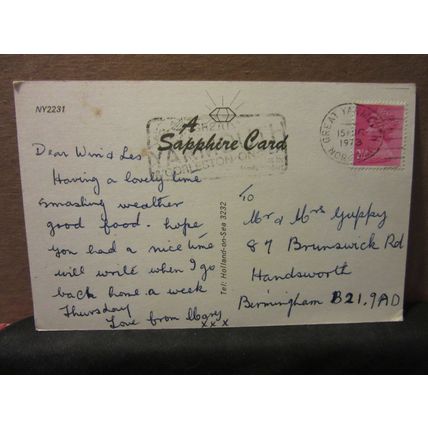 NY2231
A
Sapphire Card
GREAT
GORLESTON-ON-SEA
GREAT YA
15
1973
NOR
Tel: Holland-on-Sea 3232
Dear Win & Les
Having a lovely time
smashing weather
good food. hope
you had a nice time
will write when I go
back home a week
Thursday
Love from Mary
x x x
TO
Mr & Mrs Guppy
87 Brunswick Rd
Handsworth
Birmingham B21.9AD